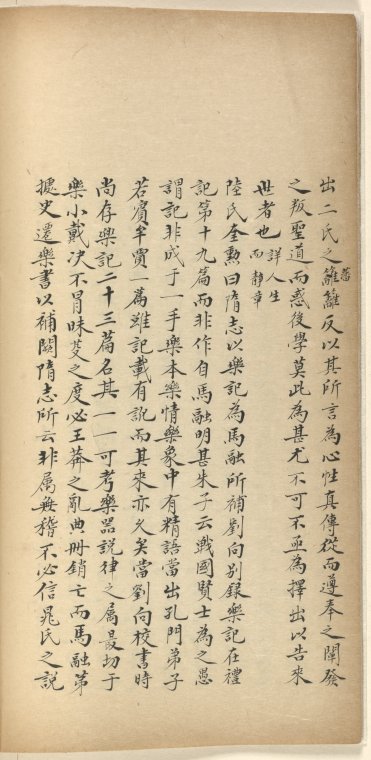 出二氏之籬籬反以其所言為心性真傳從而遵奉之闡發
之叛聖道而惑後學莫此為甚尤不可不亟為擇出以告來
世者也詳人生而靜章
陸氏奎勳曰隋志以樂記為馬融所補劉向别錄樂記在禮
記第十九篇而非作自馬融明甚朱子云戰國賢士為之愚
謂記非成于一手樂本樂情樂象中有精語當出孔門弟子
若賓牟賈一篇雖記載有訛而其來亦久矣當劉向校書時
尚存樂記二十三篇名其一一可考樂器說律之屬最切于
樂小戴决不冒昧芟之度必王莽之亂典冊銷亡而馬融第
據史遷樂書以補闕隋志所云非属無稽不必信晁氏之說